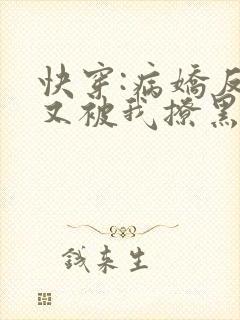 快穿:病娇反
又被我撩黑
钱来生